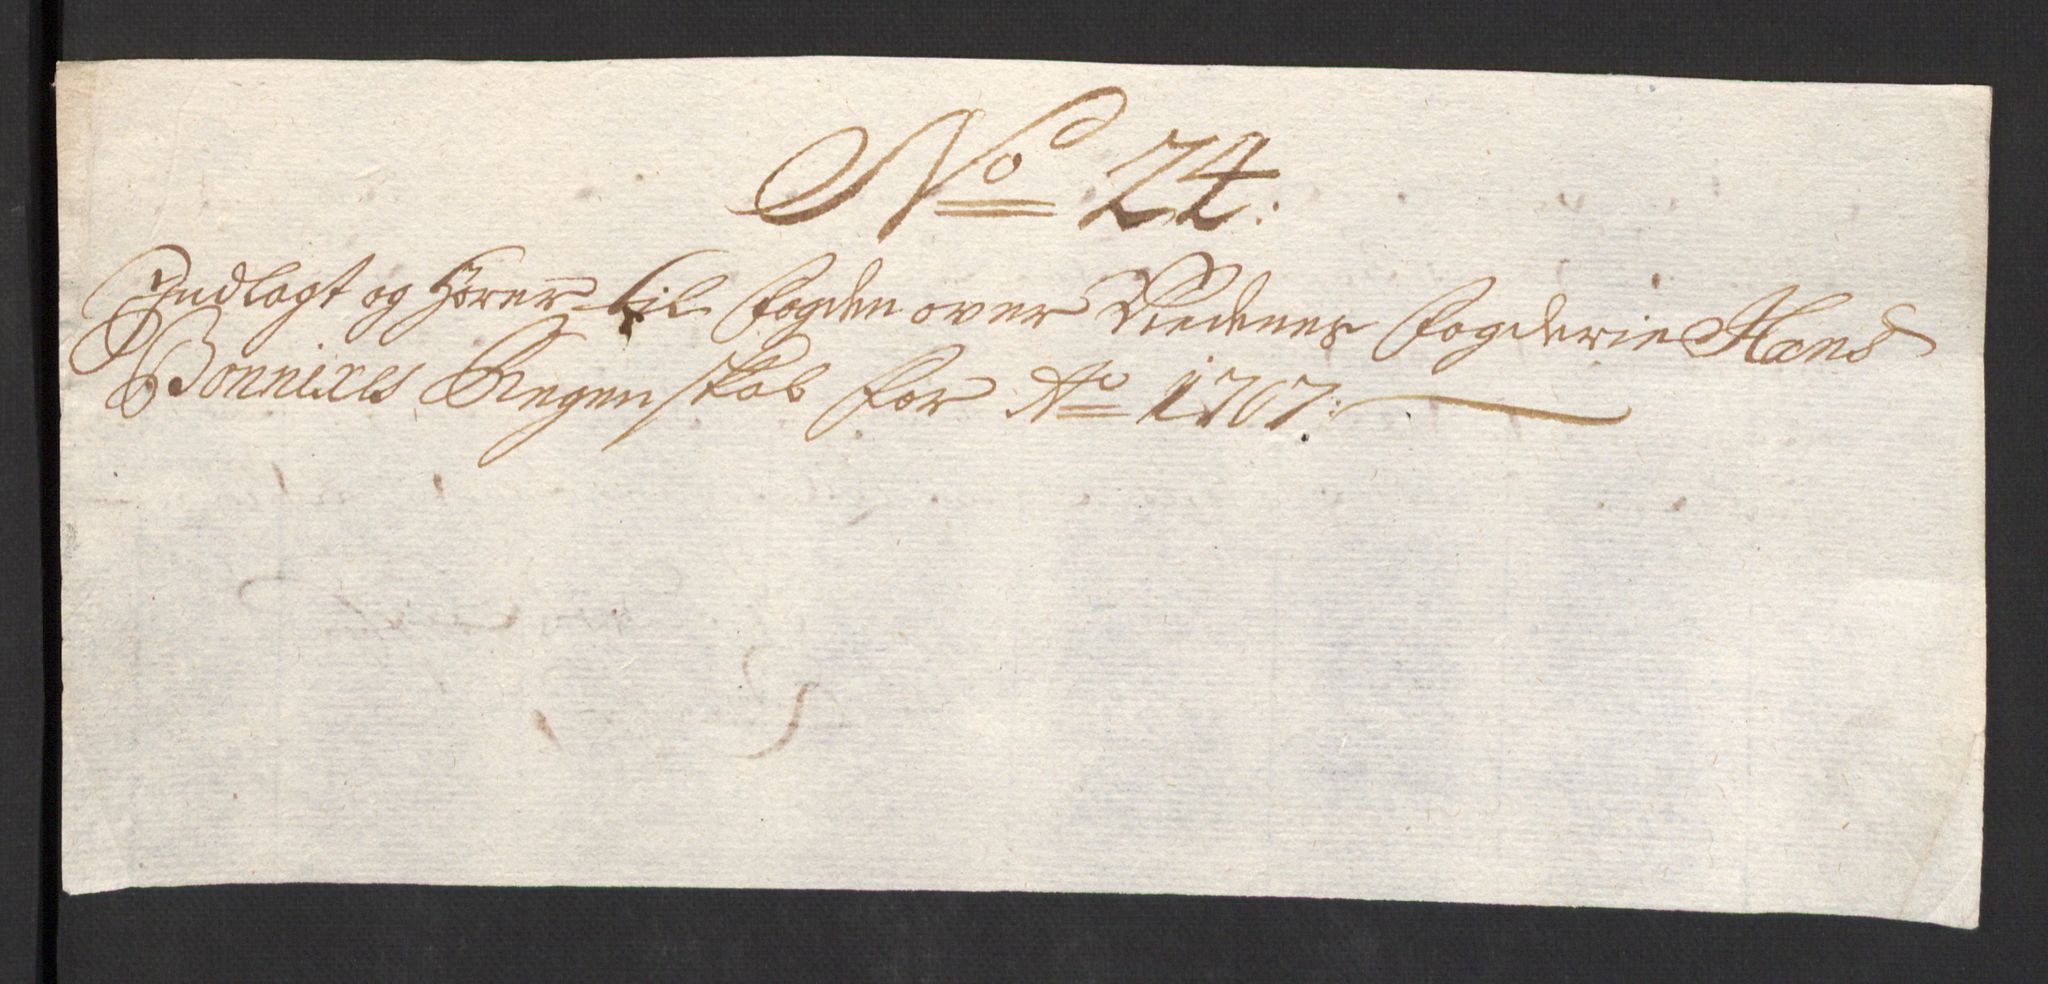 No 24:
Indlagt og hører til fogden over Nedenes fogderie Hans
Bonnixes Regenskab for Ao 1707: